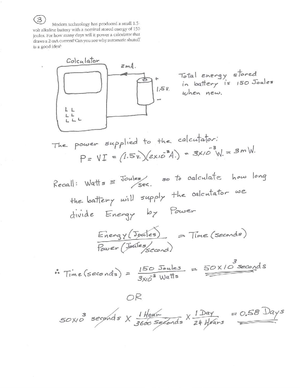 ③
Modern technology has produced a small 1.5
volt alkaline battery with a nominal stored energy of 150
joules. For how many days will it power a calculator that
draws a 2-mA current? Can you see why automatic shutoff
is a good idea?
Calculator
2mA.
+
1.5V
-
Total energy stored
in battery is 150 Joules
when new.
The power supplied to the calculator:
P = VI = (1.5V)(2x10⁻³A.) = 3x10⁻³ W. = 3mW.
Recall: Watts ≡ Joules/sec. so to calculate how long
the battery will supply the calculator we
divide Energy by Power
Energy (Joules) / Power (Joules/second) = Time (seconds)
∴ Time (seconds) = 150 Joules / 3x10⁻³ Watts = 50x10³ seconds
OR
50x10³ seconds x 1 Hour / 3600 Seconds x 1 Day / 24 Hours = 0.58 Days